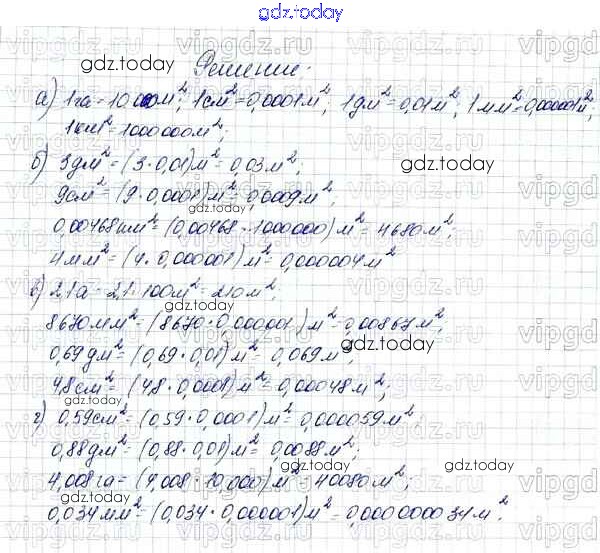 gdz.today
Решение.
а) 1га = 10 000м²; 1см² = 0,0001м²; 1дм² = 0,01м²; 1мм² = 0,000001м²;
1км² = 1000000м²;
б) 3дм² = (3·0,01)м² = 0,03м²;
9см² = (9·0,0001)м² = 0,0009м²;
0,00468км² = (0,00468·1000000)м² = 4680м²;
4мм² = (4·0,000001)м² = 0,000004м²
в) 2,1а = 2,1·100м² = 210м²;
8670мм² = (8670·0,000001)м² = 0,00867м²;
0,69дм² = (0,69·0,01)м² = 0,069м²;
4,8см² = (4,8·0,0001)м² = 0,00048м²;
г) 0,59см² = (0,59·0,0001)м² = 0,000059м²;
0,88дм² = (0,88·0,01)м² = 0,0088м²;
4,008га = (4,008·10,000)м² = 40080м²;
0,034мм² = (0,034·0,000001)м² = 0,000000034м².